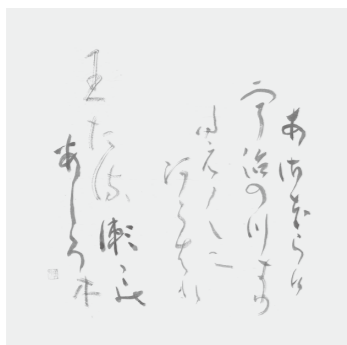 あさぼらけ
宇治の川きり
たえ〳〵に
あらはれ
王たる
瀬ゞの
あしろ木